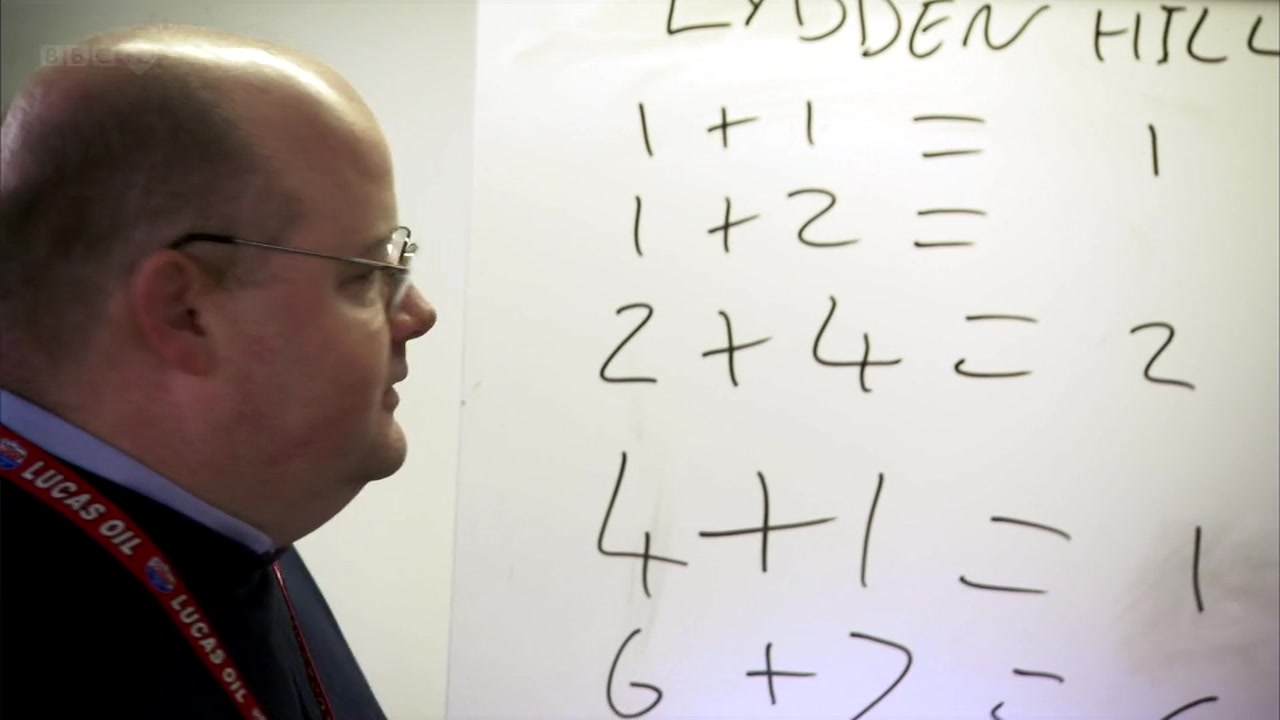 LYDDEN HILL
1 + 1 = 1
1 + 2 =
2 + 4 = 2
4 + 1 = 1
6 + 7 =
LUCAS OIL
LUCAS OIL